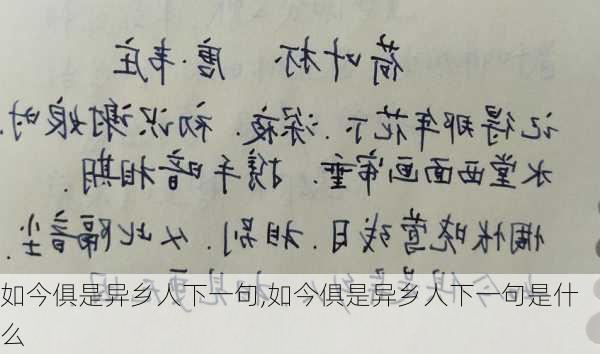 荷叶杯 唐·韦庄
记得那年花下.深夜.初识谢娘时.
水堂西面画帘垂.携手暗相期.
惆怅晓莺残月.相别.从此隔音尘.
如今俱是异乡人下一句,如今俱是异乡人下一句是什
么